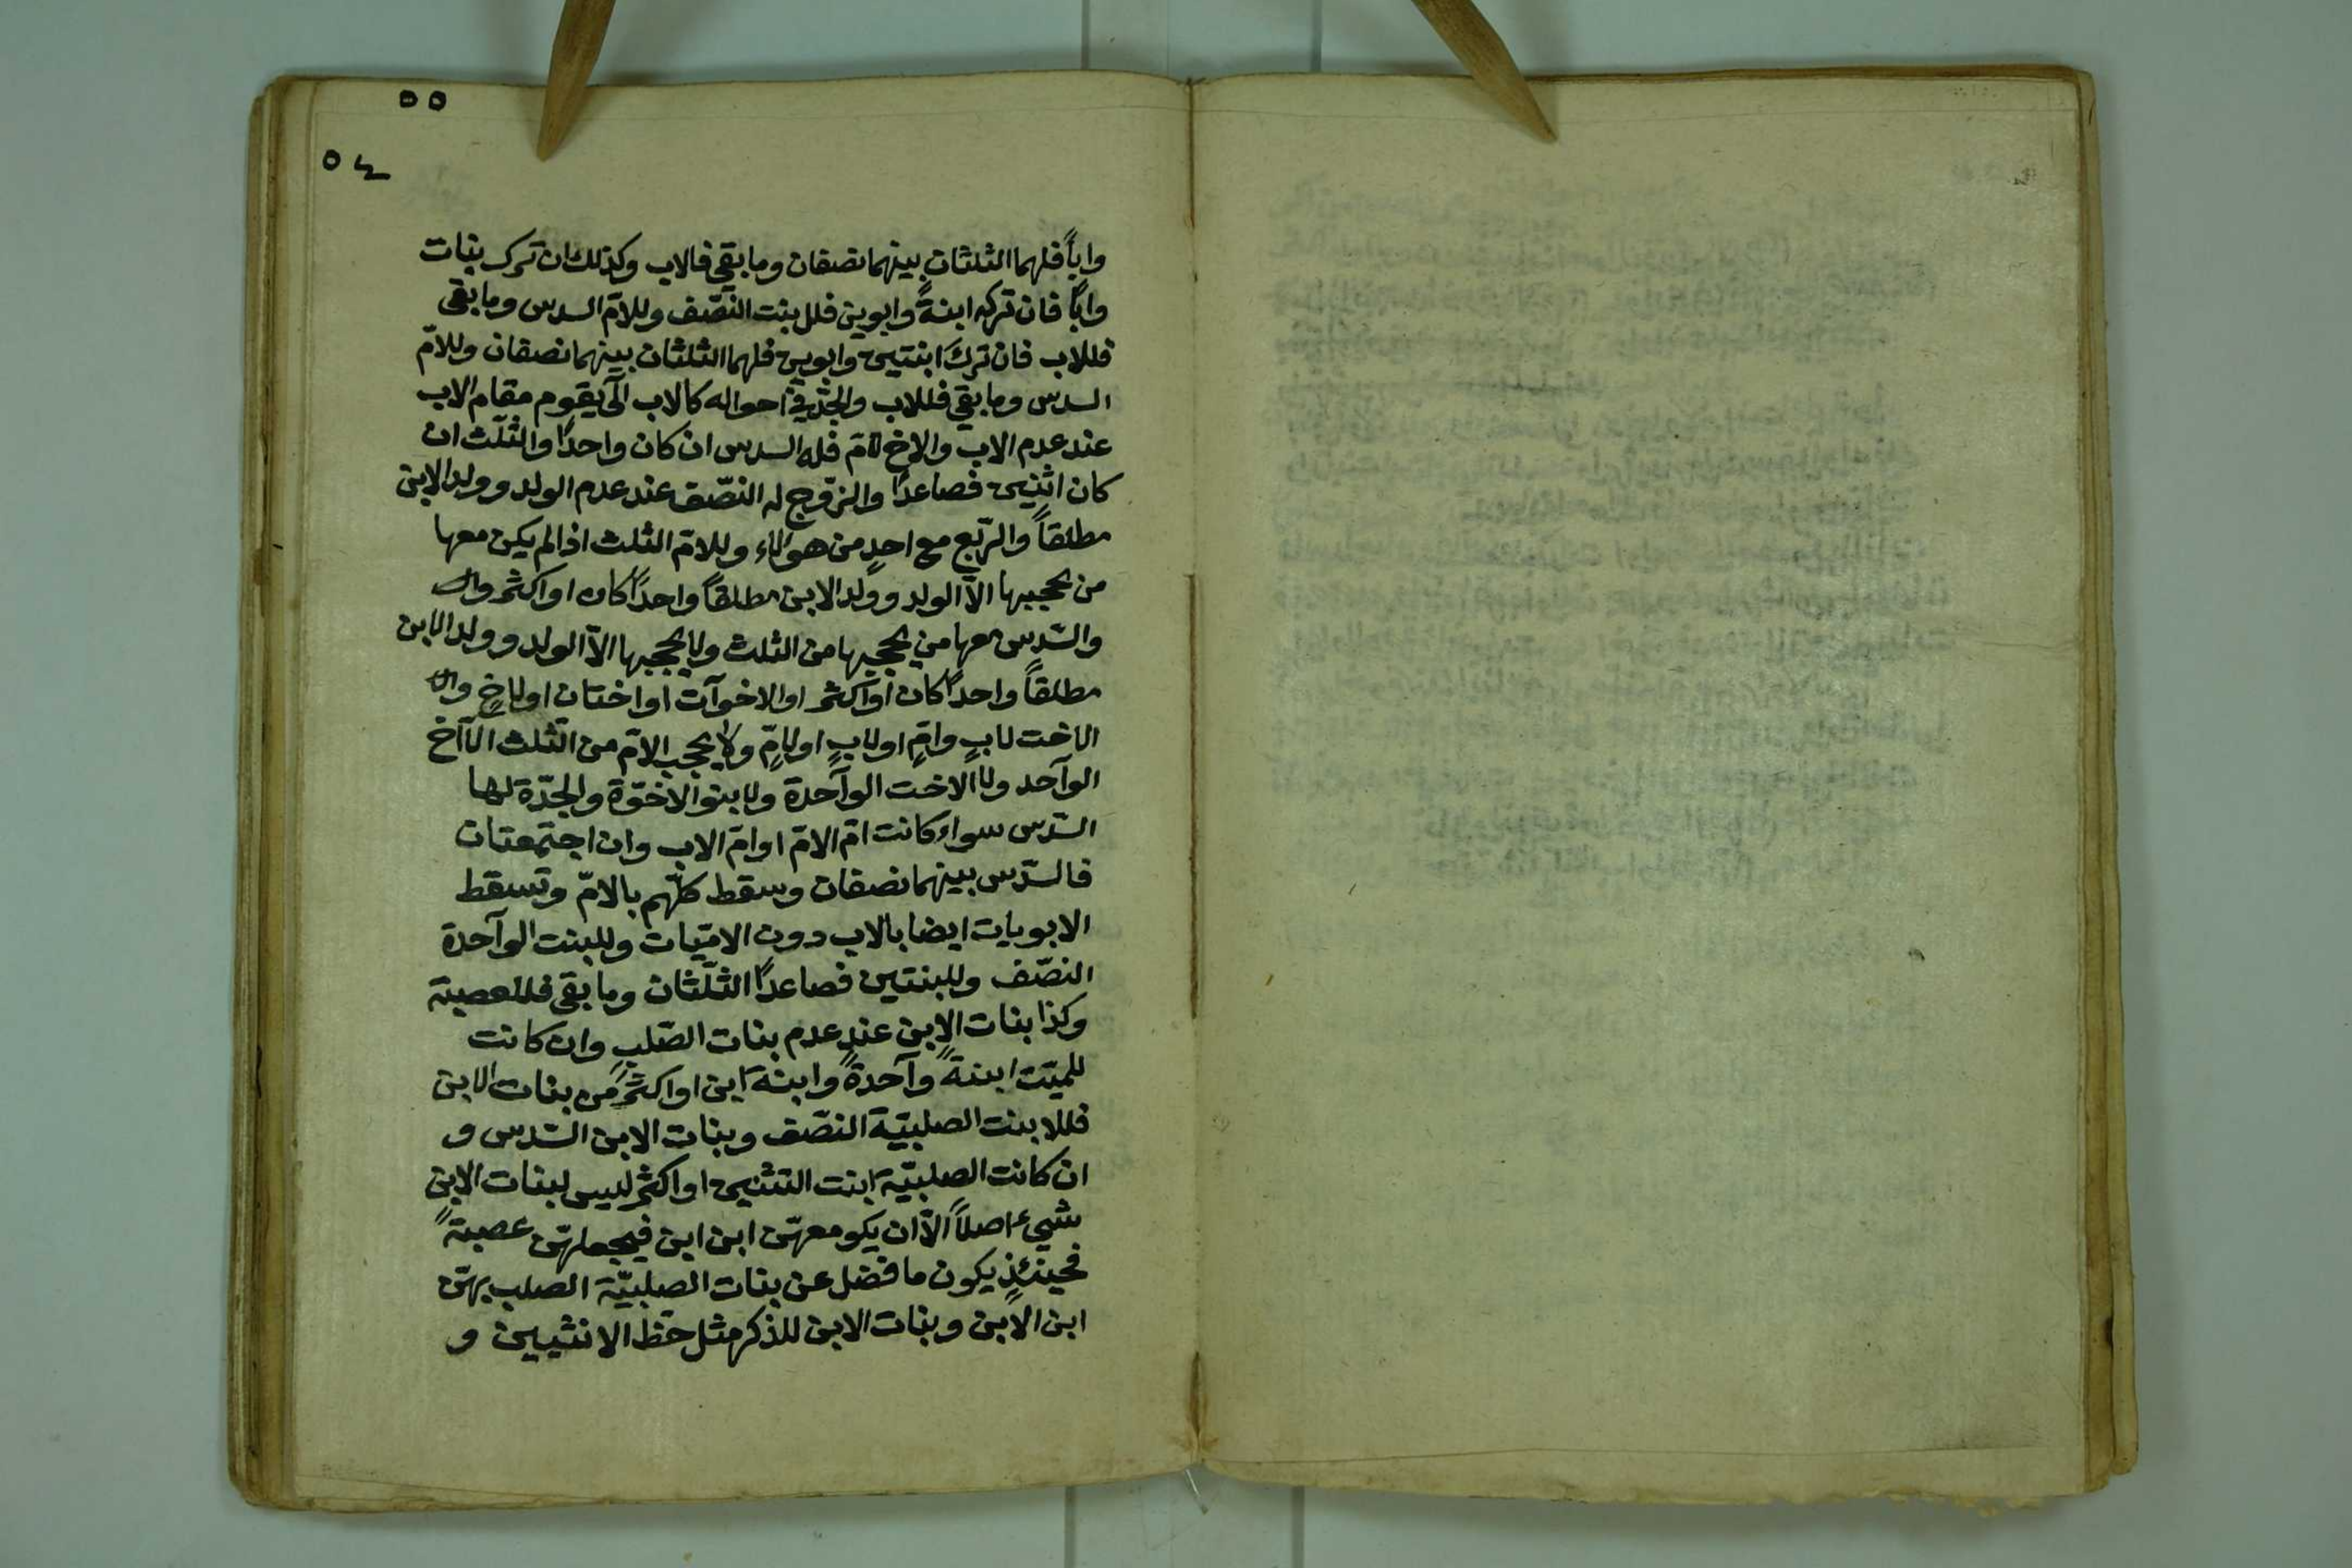 ٥٥
٥٤
واباً فلهما الثلثان بينهما نصفان وما بقى فالاب وكذلك ان ترك بنات
واباً فان تركه ابنةً وابوين فلل بنت النصّف وللامّ السدس وما بقى
فللاب فان ترك ابنتين وابوين فلهما الثلثان بينهما نصفان وللامّ
السدس وما بقي فللاب والجدّ في احواله كالاب الّى يقوم مقام الاب
عند عدم الاب والاخ لامّ فله السدس ان كان واحدًا والثلّث ان
كان اثنين فصاعدًا والزّوج له النصّف عند عدم الولد وولد الابن
مطلقاً والرّبع مع احدٍ من هؤلاء وللامّ الثلث اذا لم يكن معها
من يحجبها الاّ الولد وولد الابن مطلقاً واحدًا كان او اكثر
والسّدس معها من يحجبها من الثلث ولا يحجبها الاّ الولد وولد الابن
مطلقاً واحدًا كان او اكثر او الاخوآت او اختان او لاخٍ
الاخت لابٍ وامٍّ او لابٍ او لامٍّ ولا يحجب الامّ من الثّلث الاّ اخ
الوآحد ولا الاخت الوآحدة ولا بنو الاخوّة والجدّة لها
السّدس سواء كانت امّ الامّ او امّ الاب وان اجتمعتان
فالسّدس بينهما نصفان وسقط كلّهم بالامّ وتسقط
الابويات ايضا بالاب دون الاميّات وللبنت الوآحدة
النصّف وللبنتين فصاعدًا الثلّثان وما بقى فللعصبة
وكذا بنات الابن عند عدم بنات الصّلب وان كانت
للميّت ابنةً وآحدةً وابنة ابن او اكثر من بنات الابن
فللابنت الصلبيّة النصّف وبنات الابن السّدس و
ان كانت الصلبيّة ابنت التثنين او اكثر ليس لبنات الابن
شيئ اصلاً الاّ ان يكو معهنّ ابن ابن فيجعلهنّ عصبةً
فحينئذٍ يكون ما فضل عن بنات الصلبيّة الصلب بهنّ
ابن الابن وبنات الابن للذكر مثل حظّ الانثيين و